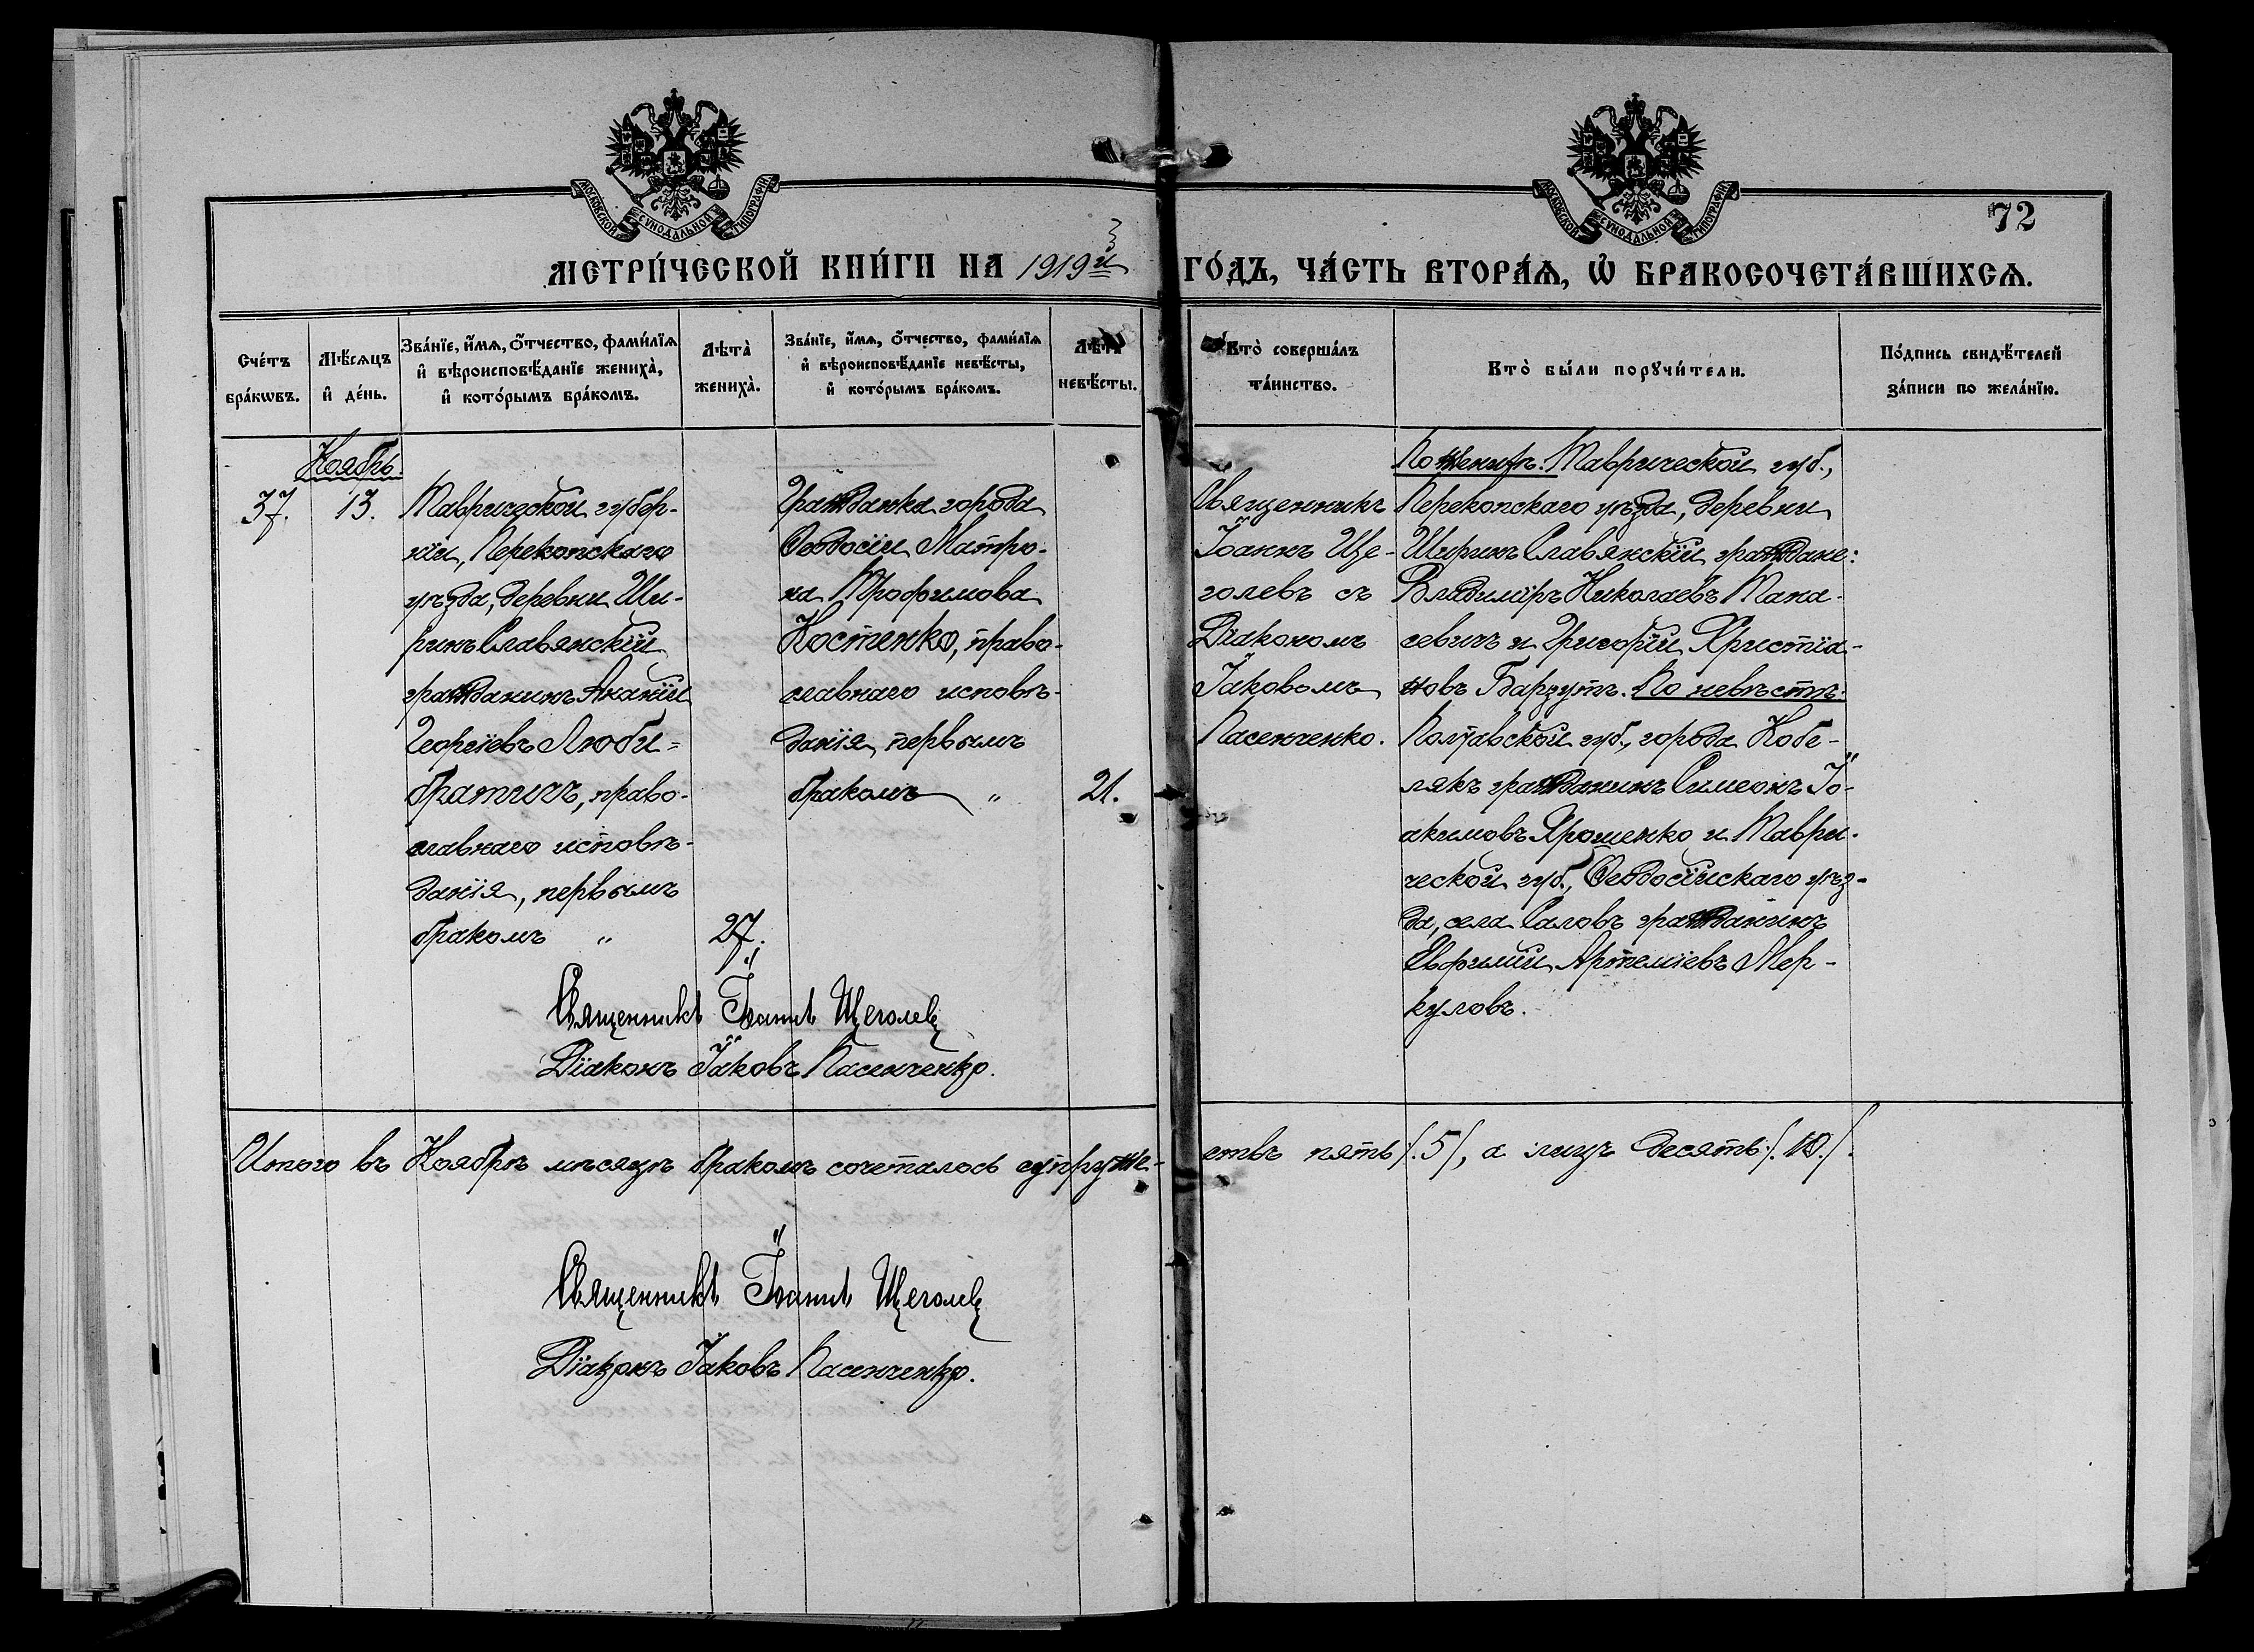 МОСКОВСКОЙ СѴНОДАЛЬНОЙ ТИПОГРАФІИ
МОСКОВСКОЙ СѴНОДАЛЬНОЙ ТИПОГРАФІИ
72
МЕТРИ́ЧЕСКОЙ КНИ́ГИ НА 1919й ГО́ДЪ, ЧА́СТЬ ВТОРА́Ѧ, Ѡ҆ БРАКОСОЧЕТА́ВШИХСѦ.
Сче́тъ бра́кѡвъ.
Мѣ́сѧцъ и҆ де́нь.
Зва́нїе, и҆́мѧ, ѻ҆́тчество, фами́лїѧ
и҆ вѣроисповѣ́данїе жениха̀,
и҆ кото́рымъ бра́комъ.
Лѣта̀ жениха̀.
Зва́нїе, и҆́мѧ, ѻ҆́тчество, фами́лїѧ
и҆ вѣроисповѣ́данїе невѣ́сты,
и҆ кото́рымъ бра́комъ.
Лѣта̀ невѣ́сты.
Кто̀ соверша́лъ та́инство.
Кто̀ бы́ли порꙋчи́тели.
По́дпись свидѣ́телей
за́писи по жела́нїю.
Ноябрь.
37.
13.
Таврической губер-
нїи, Перекопскаго
уѣзда, деревни Ши-
ринъ Славянскїй
гражданинъ Акакїй
Георгіевъ Люби-
братичъ, право-
славнаго исповѣ-
данїя, первымъ
бракомъ „
27.
Гражданка города
Ѳеодосїи Матро-
на Трофимова
Костенко, право-
славнаго исповѣ-
данїя, первымъ
бракомъ „
21.
Священникъ
Іоаннъ Ще-
голевъ съ
Дїакономъ
Іаковомъ
Пасенченко.
По женихѣ: Таврической губ.,
Перекопскаго уѣзда, деревни
Ширинъ Славянскїй граждане:
Владимїръ Николаевъ Тана-
севичъ и Григорїй Христїа-
новъ Барзутъ. По невѣстѣ:
Полтавской губ., города Кобе-
лякъ гражданинъ Симеонъ Іо-
акимовъ Ярошенко и Таври-
ческой губ., Ѳеодосїйскаго уѣз-
да, села Саловъ гражданинъ
Евфимїй Артемїевъ Мер-
куловъ.
Священникъ Іоаннъ Щеголевъ
Дїаконъ Іаковъ Пасенченко.
Итого въ Ноябрѣ мѣсяцѣ бракомъ сочеталось супруже-ствъ пять /.5/, а лицъ десять /.10./.
Священникъ Іоаннъ Щеголевъ
Дїаконъ Іаковъ Пасенченко.